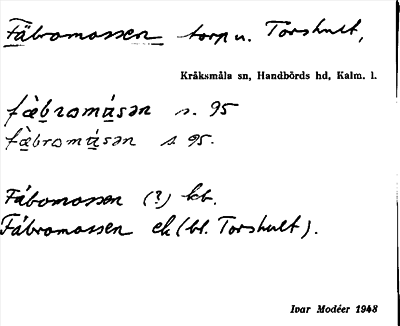 Fäbromossen torp u. Torshult,
Kråksmåla sn, Handbörds hd, Kalm. l.
fàbromásən s. 95
fàbromásən s 95.
Fábomossen (?) kb.
Fábromossen ek (bl. Torshult).
Ivar Modéer 1943